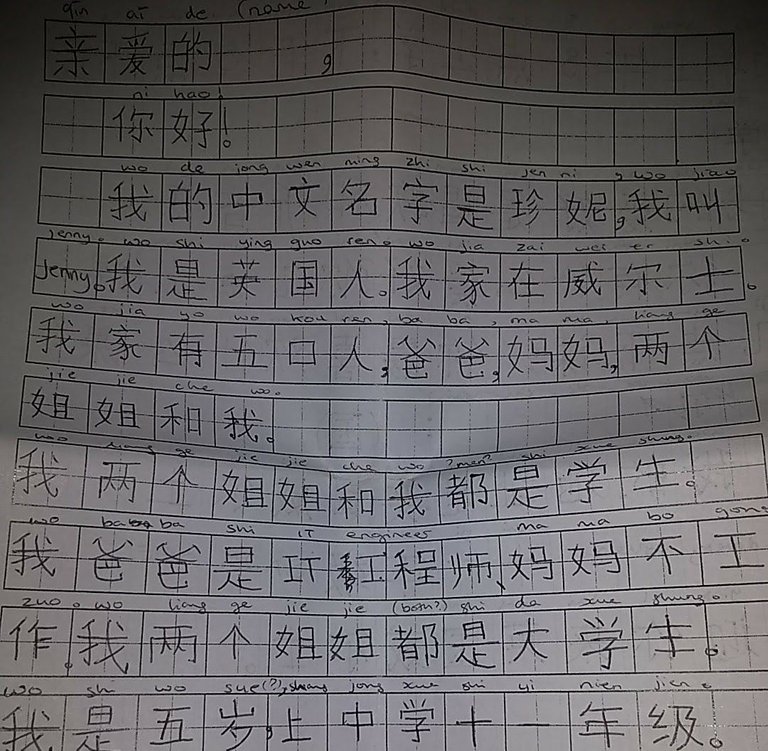 qin ai de (name)
亲爱的 ，
ni hao!
你好！
wo de jong wen ming zhi shi jen ni , wo jiao
我的中文名字是珍妮，我叫
Jenny。 wo shi ying guo ren。 wo jia zai wei er shi。
Jenny。我是英国人。我家在威尔士。
wo jia yo wo kou ren, ba ba, ma ma, liang ge
我家有五口人，爸爸，妈妈，两个
jie jie che wo。
姐姐和我。
wo liang ge jie jie che wo ?men? shi xue shung。
我两个姐姐和我都是学生。
wo ba ba shi IT engineer ma ma bo gong
我爸爸是IT工程师、妈妈不工
zuo。 wo liang ge jie jie (both?) shi da xue shung。
作。我两个姐姐都是大学生。
wo shi wo sue(?), shang jong xue shi yi nien jien。
我是五岁，上中学十一年级。